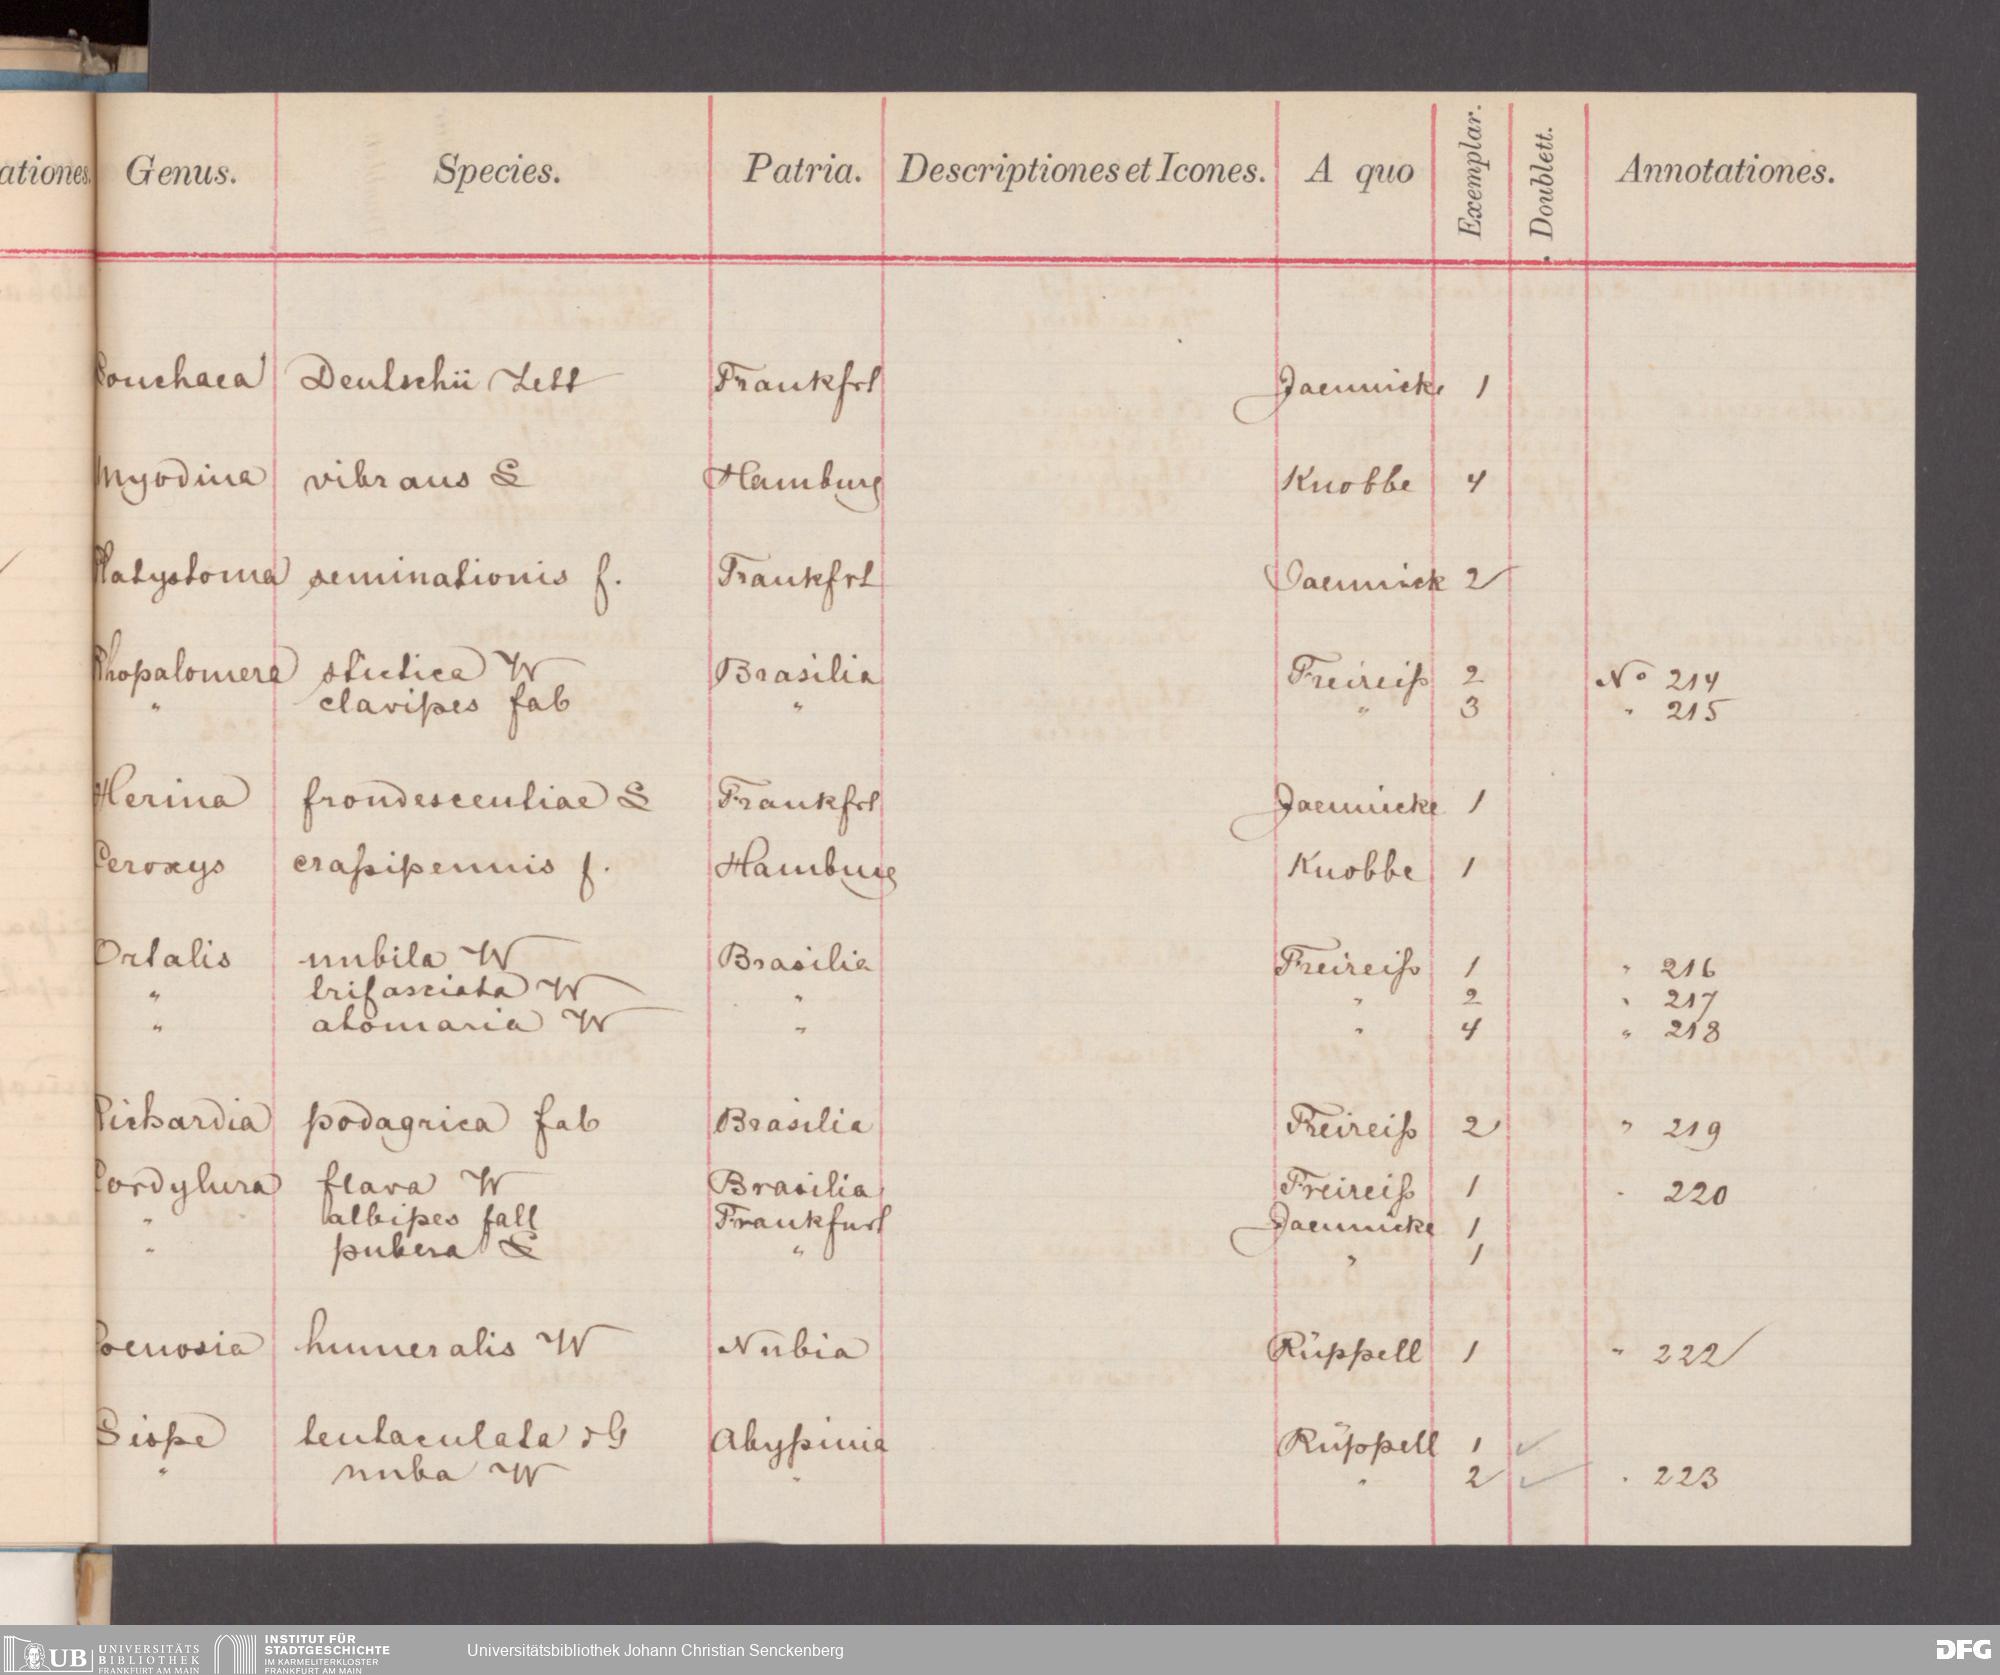 ationes. Genus. Species. Patria. Descriptiones et Icones. A quo Exemplar. Doublett. Annotationes.
Lonchaea Deutschii Zett Frankfrt Jaennicke 1
Myodina vibrans L Hamburg Knobbe 4
Platystoma seminationis f. Frankfrt Jaennick 2
Rhopalomera stictica W Brasilia Freireiß 2 No 214
" clavipes fab " " 3 " 215
Herina frondescentiae L Frankfrt Jaennicke 1
Ceroxys craßipennis f. Hamburg Knobbe 1
Ortalis nubila W Brasilia Freireiß 1 " 216
" trifasciata W " " 2 " 217
" atomaria W " " 4 " 218
Richardia podagrica fab Brasilia Freireiß 2 " 219
Cordylura flava W Brasilia Freireiß 1 " 220
" albipes fall Frankfurt Jaennicke 1
" pubera L " " 1
Coenosia humeralis W Nubia Rüppell 1 " 222
Lispe tentaculata dG Abyßinia Rüppell 1 ✓
" nuba W " " 2 ✓ " 223
UB UNIVERSITÄTS
BIBLIOTHEK
FRANKFURT AM MAIN
INSTITUT FÜR
STADTGESCHICHTE
IM KARMELITERKLOSTER
FRANKFURT AM MAIN
Universitätsbibliothek Johann Christian Senckenberg
DFG